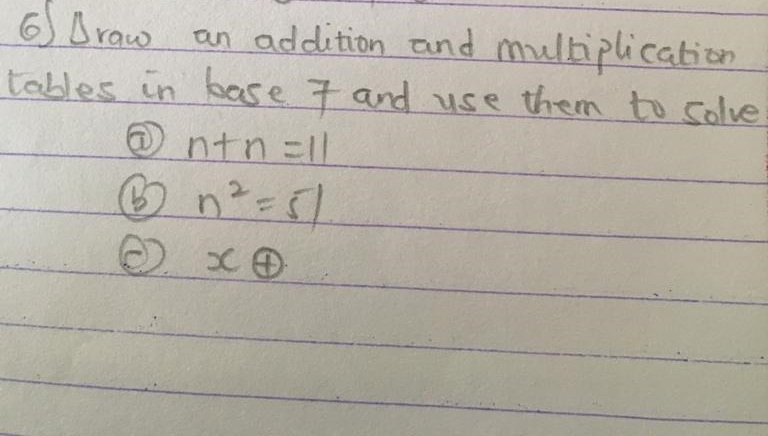 6) Draw an addition and multiplication
tables in base 7 and use them to solve
ⓐ n+n = 11
ⓑ n² = 51
ⓒ x ⊕